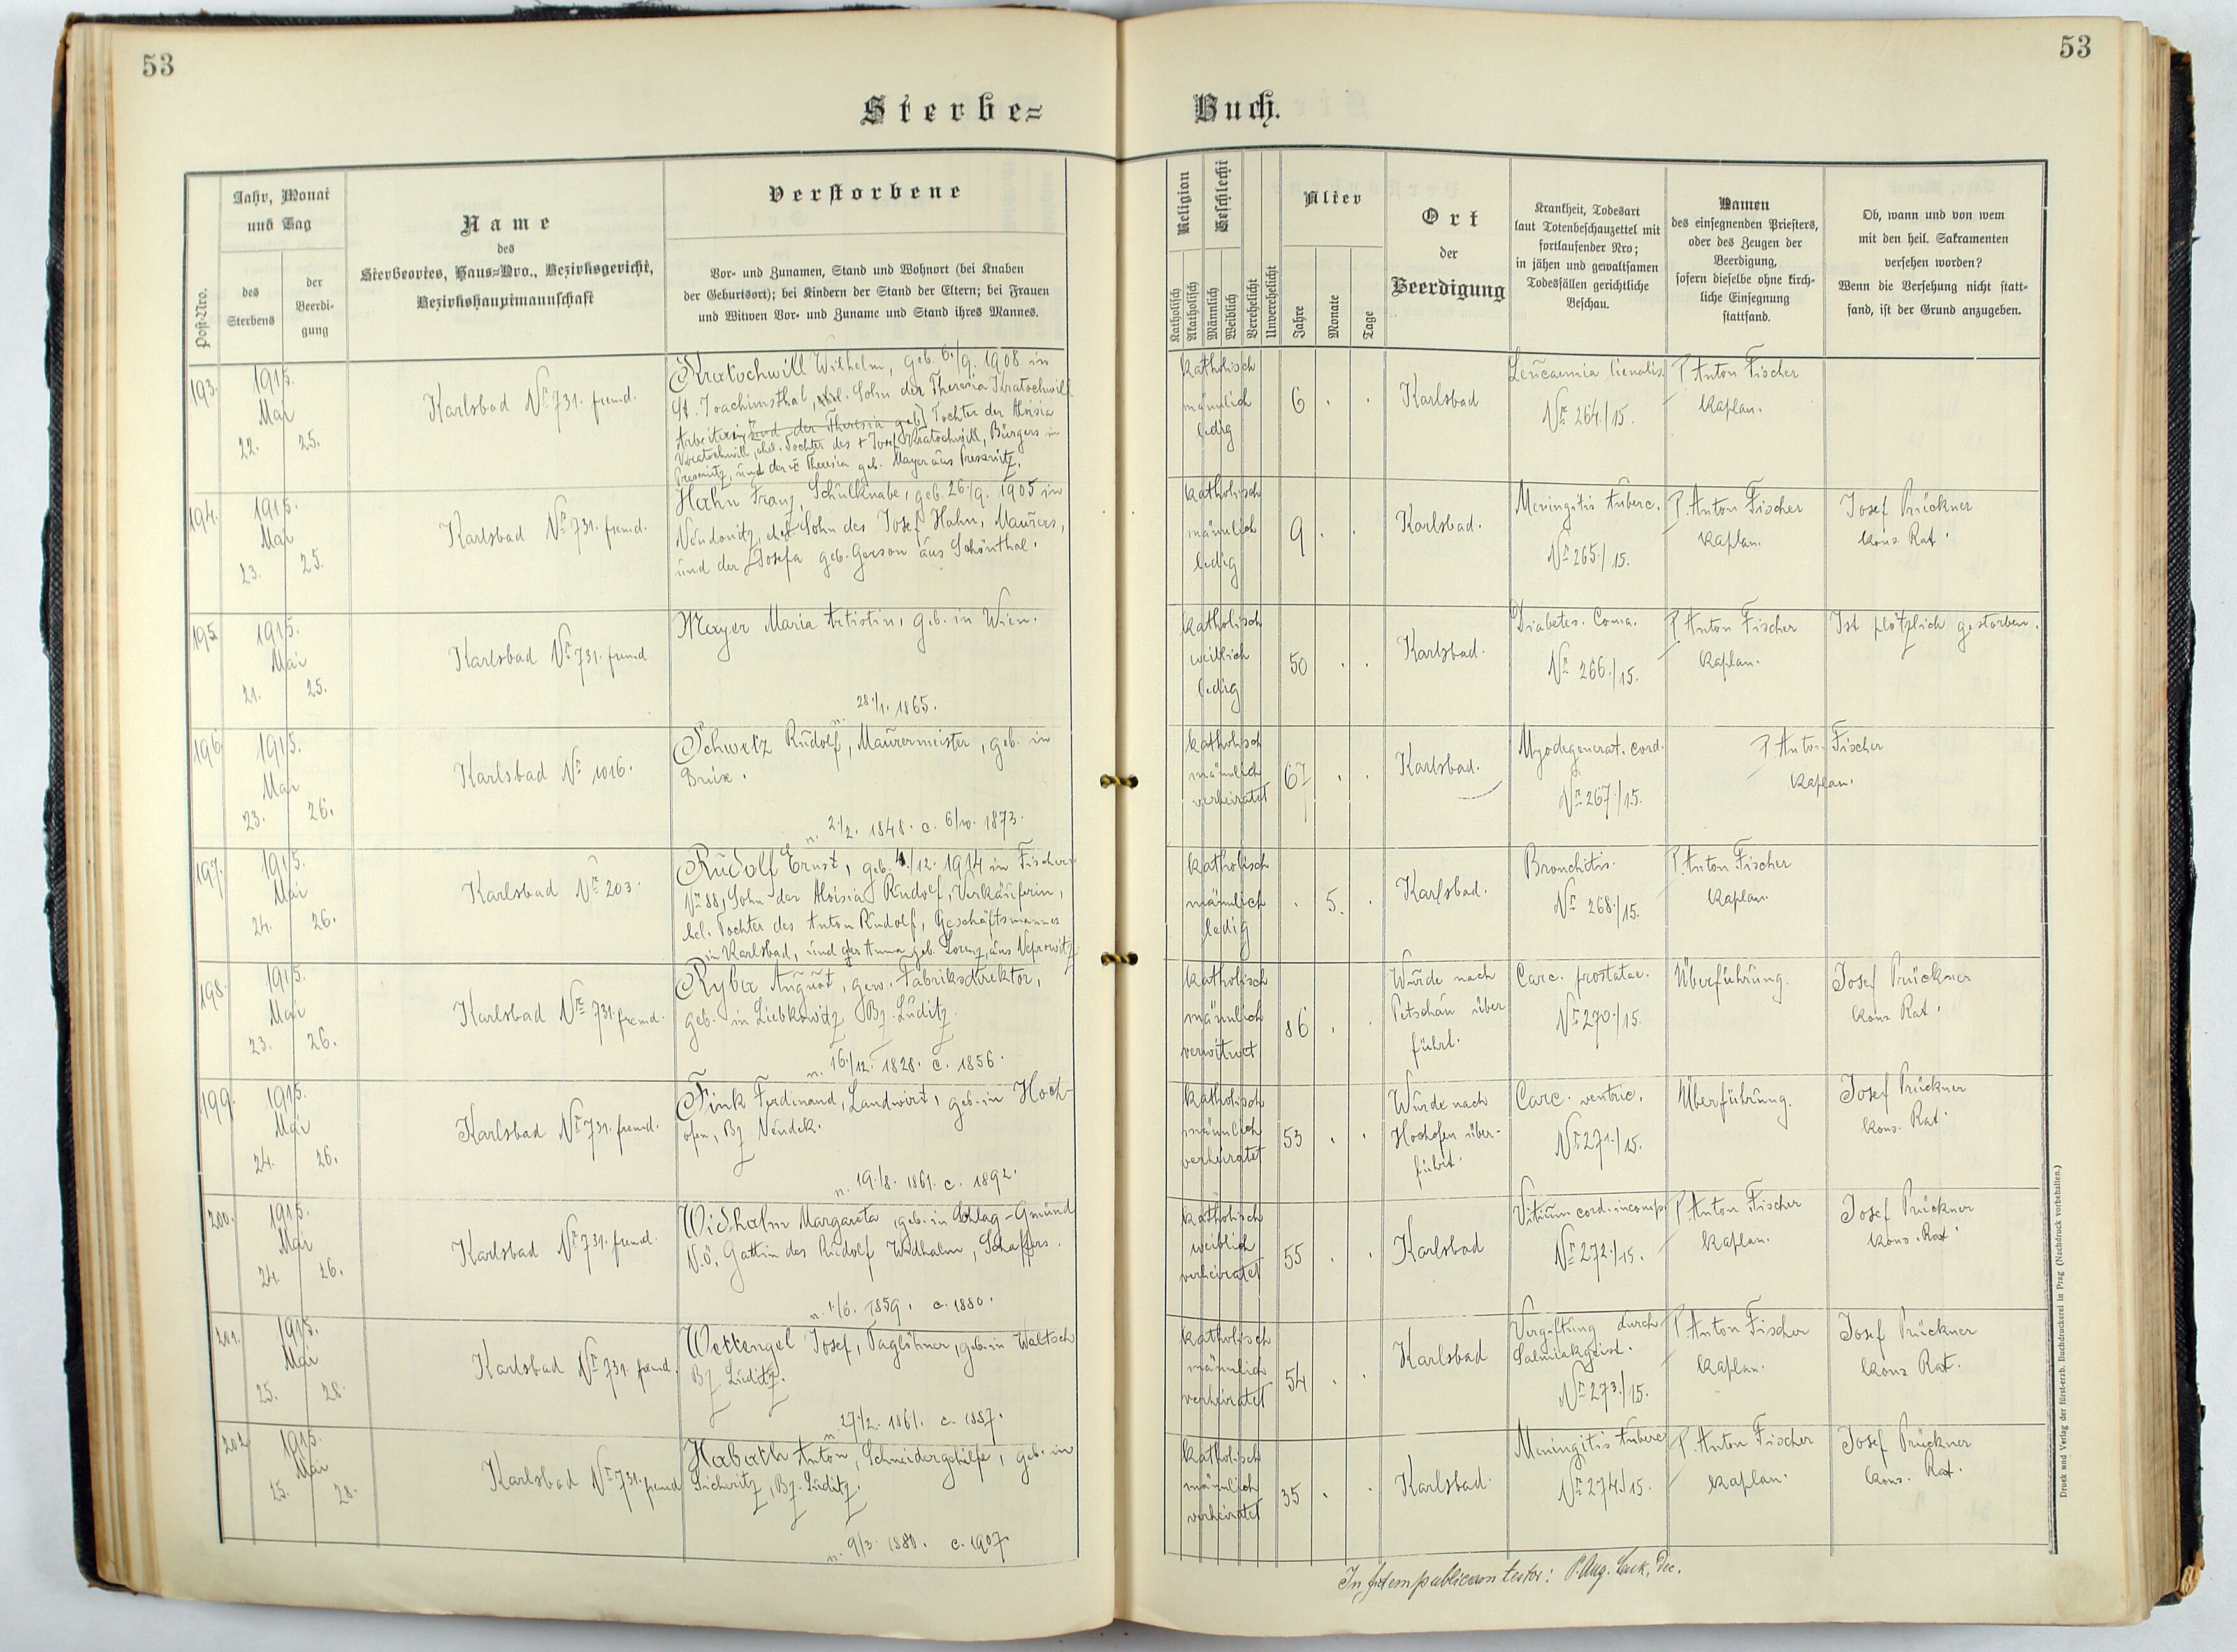 53
53
Sterbe=
Buch.
Post-Nro.
Jahr, Monat
und Tag
des
Sterbens
der
Beerdi-
gung
Name
des
Sterbeortes, Haus=Nro., Bezirksgericht,
Bezirkshauptmannschaft
Verstorbene
Vor- und Zunamen, Stand und Wohnort (bei Knaben
der Geburtsort); bei Kindern der Stand der Eltern; bei Frauen
und Witwen Vor- und Zuname und Stand ihres Mannes.
Religion
Katholisch
Akatholisch
Geschlecht
Männlich
Weiblich
Verehelicht
Unverehelicht
Alter
Jahre
Monate
Tage
Ort
der
Beerdigung
Krankheit, Todesart
laut Totenbeschauzettel mit
fortlaufender Nro;
in jähen und gewaltsamen
Todesfällen gerichtliche
Beschau.
Namen
des einsegnenden Priesters,
oder des Zeugen der
Beerdigung,
sofern dieselbe ohne kirch-
liche Einsegnung
stattfand.
Ob, wann und von wem
mit den heil. Sakramenten
versehen worden?
Wenn die Versehung nicht statt-
fand, ist der Grund anzugeben.
193.
1915.
Mai
22. 25.
Karlsbad Nr 731. fremd.
Kratschwill Wilhelm, geb. 6./9. 1908 in
St. Joachimsthal, Sohn der Theresia Kratochwill
Arbeiterin, und der Theresia geb. Tochter der Aloisia
Kratochwill, ehel. Tochter des † Josef Kratochwill, Bürgers in
Pressnitz, und der Theresia geb. Mayer aus Pressnitz.
katholisch
männlich
ledig
6 . .
Karlsbad
Leucaemia lienalis.
Nr 264./15.
P. Anton Fischer
Kaplan.
194.
1915.
Mai
23. 25.
Karlsbad Nr 731. fremd.
Hahn Franz, Schulknabe, geb. 26./9. 1905 in
Neudonitz, ehel. Sohn des Josef Hahn, Maurers,
und der Josefa geb. Gerson aus Schönthal.
katholisch
männlich
ledig
9 . .
Karlsbad.
Meningitis tuberc.
Nr 265/15.
P. Anton Fischer
Kaplan.
Josef Prückner
kons. Rat.
195
1915.
Mai
21. 25.
Karlsbad Nr 731. fremd
Mayer Maria Artistin, geb. in Wien.
n. 28./1. 1865.
katholisch
weiblich
ledig
50 . .
Karlsbad.
Diabetes. Coma.
Nr 266./15.
P. Anton Fischer
Kaplan.
Ist plötzlich gestorben.
196
1915.
Mai
23. 26.
Karlsbad Nr 1016.
Schwetz Rudolf, Maurermeister, geb. in
Brüx.
n. 2./2. 1848. c. 6/10. 1873.
katholisch
männlich
verheiratet
67 . .
Karlsbad.
Myodegenerat. cord.
Nr 267./15.
P. Anton Fischer
Kaplan.
197.
1915.
Mai
24. 26.
Karlsbad Nr 203.
Rudolf Ernst, geb. 4./12. 1914 in Fischern
Nr 88, Sohn der Aloisia Rudolf, Verkäuferin,
hel. Tochter des Anton Rudolf, Geschäftsmannes
in Karlsbad, und der Anna geb. Lorenz, aus Neprowitz.
katholisch
männlich
ledig
. 5. .
Karlsbad.
Bronchitis.
Nr 268./15.
P. Anton Fischer
Kaplan.
198.
1915.
Mai
23. 26.
Karlsbad Nr 731. fremd.
Ryba August, gew. Fabriksdirektor,
geb. in Liebkowitz Bz. Luditz.
n. 16./12. 1828. c. 1856.
katholisch
männlich
verwitwet
86 . .
Wurde nach
Petschau über
führt.
Carc. prostatae.
Nr 270./15.
Überführung.
Josef Prückner
kons Rat.
199.
1915.
Mai
24. 26.
Karlsbad Nr 731. fremd.
Fink Ferdinand, Landwirt, geb. in Hoch-
ofen, Bz Neudek.
n. 19./8. 1861. c. 1892.
katholisch
männlich
verheiratet
53 . .
Wurde nach
Hochofen über-
führt.
Carc. ventric.
Nr 271./15.
Überführung.
Josef Prückner
kons. Rat
200.
1915.
Mai
24. 26.
Karlsbad Nr 731. fremd.
Widhalm Margareta, geb. in Gmünd
N.Ö. Gattin des Rudolf Widhalm, Schaffers.
n. 1./6. 1859. c. 1880.
katholisch
weiblich
verheiratet
55 . .
Karlsbad
Vitium cord. incomp.
Nr 272./15.
P. Anton Fischer
Kaplan.
Josef Prückner
kons. Rat.
201.
1915.
Mai
25. 28.
Karlsbad Nr 731. fremd.
Wettengel Josef, Taglöhner, geb. in Waltsch
Bz Luditz.
n. 27./2. 1861. c. 1887.
katholisch
männlich
verheiratet
54 . .
Karlsbad
Vergiftung durch
Salmiakgeist.
Nr 273./15.
P. Anton Fischer
Kaplan.
Josef Prückner
kons Rat.
202
1915.
Mai
25. 28.
Karlsbad Nr 731. fremd
Habath Anton, Schneidergehilfe, geb. in
Sichwitz, Bz. Luditz.
n. 9/3. 1880. c. 1907
katholisch
männlich
verheiratet
35 . .
Karlsbad.
Meningitis tuberc
Nr 274./15.
P. Anton Fischer
Kaplan.
Josef Prückner
kons. Rat.
In fidem publicam testor: P. Aug. Dec.
Druck und Verlag der fürst-erzb. Buchdruckerei in Prag (Nachdruck vorbehalten.)